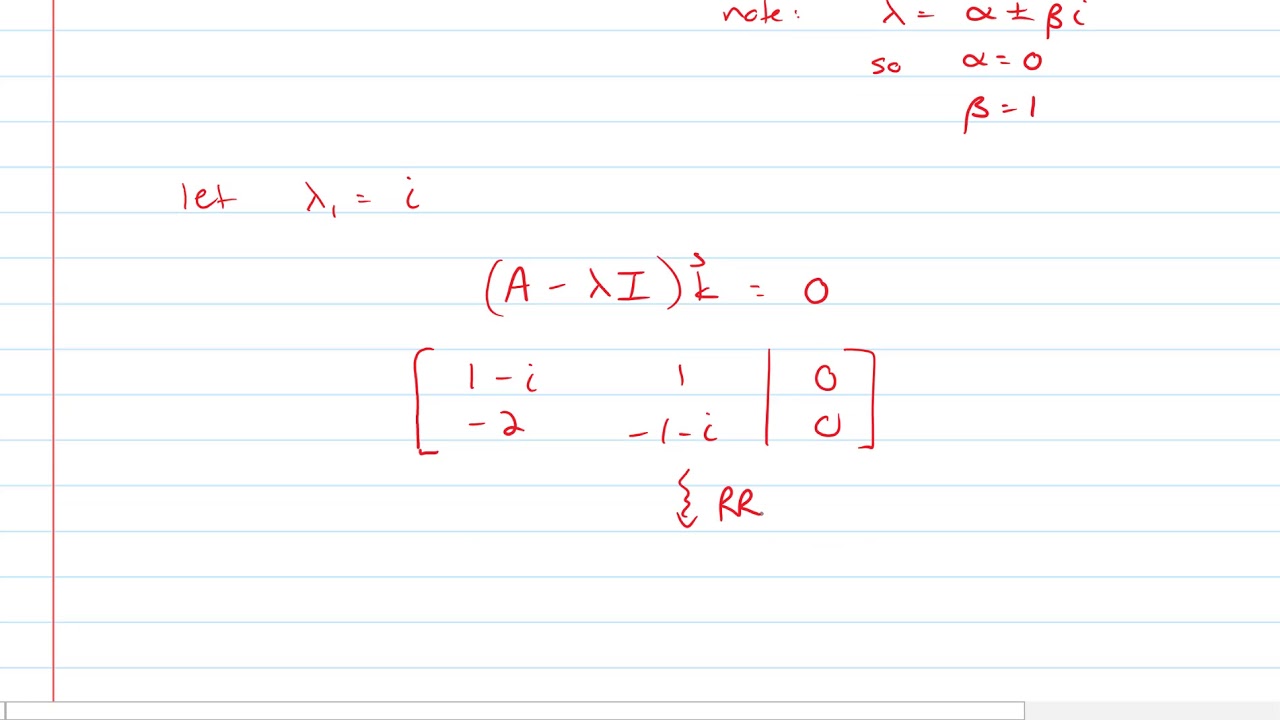 note: λ = α ± βi
so α = 0
β = 1
let λ₁ = i
(A - λI)k⃗ = 0
1 - i 1 | 0
-2 -1 - i | 0
RR